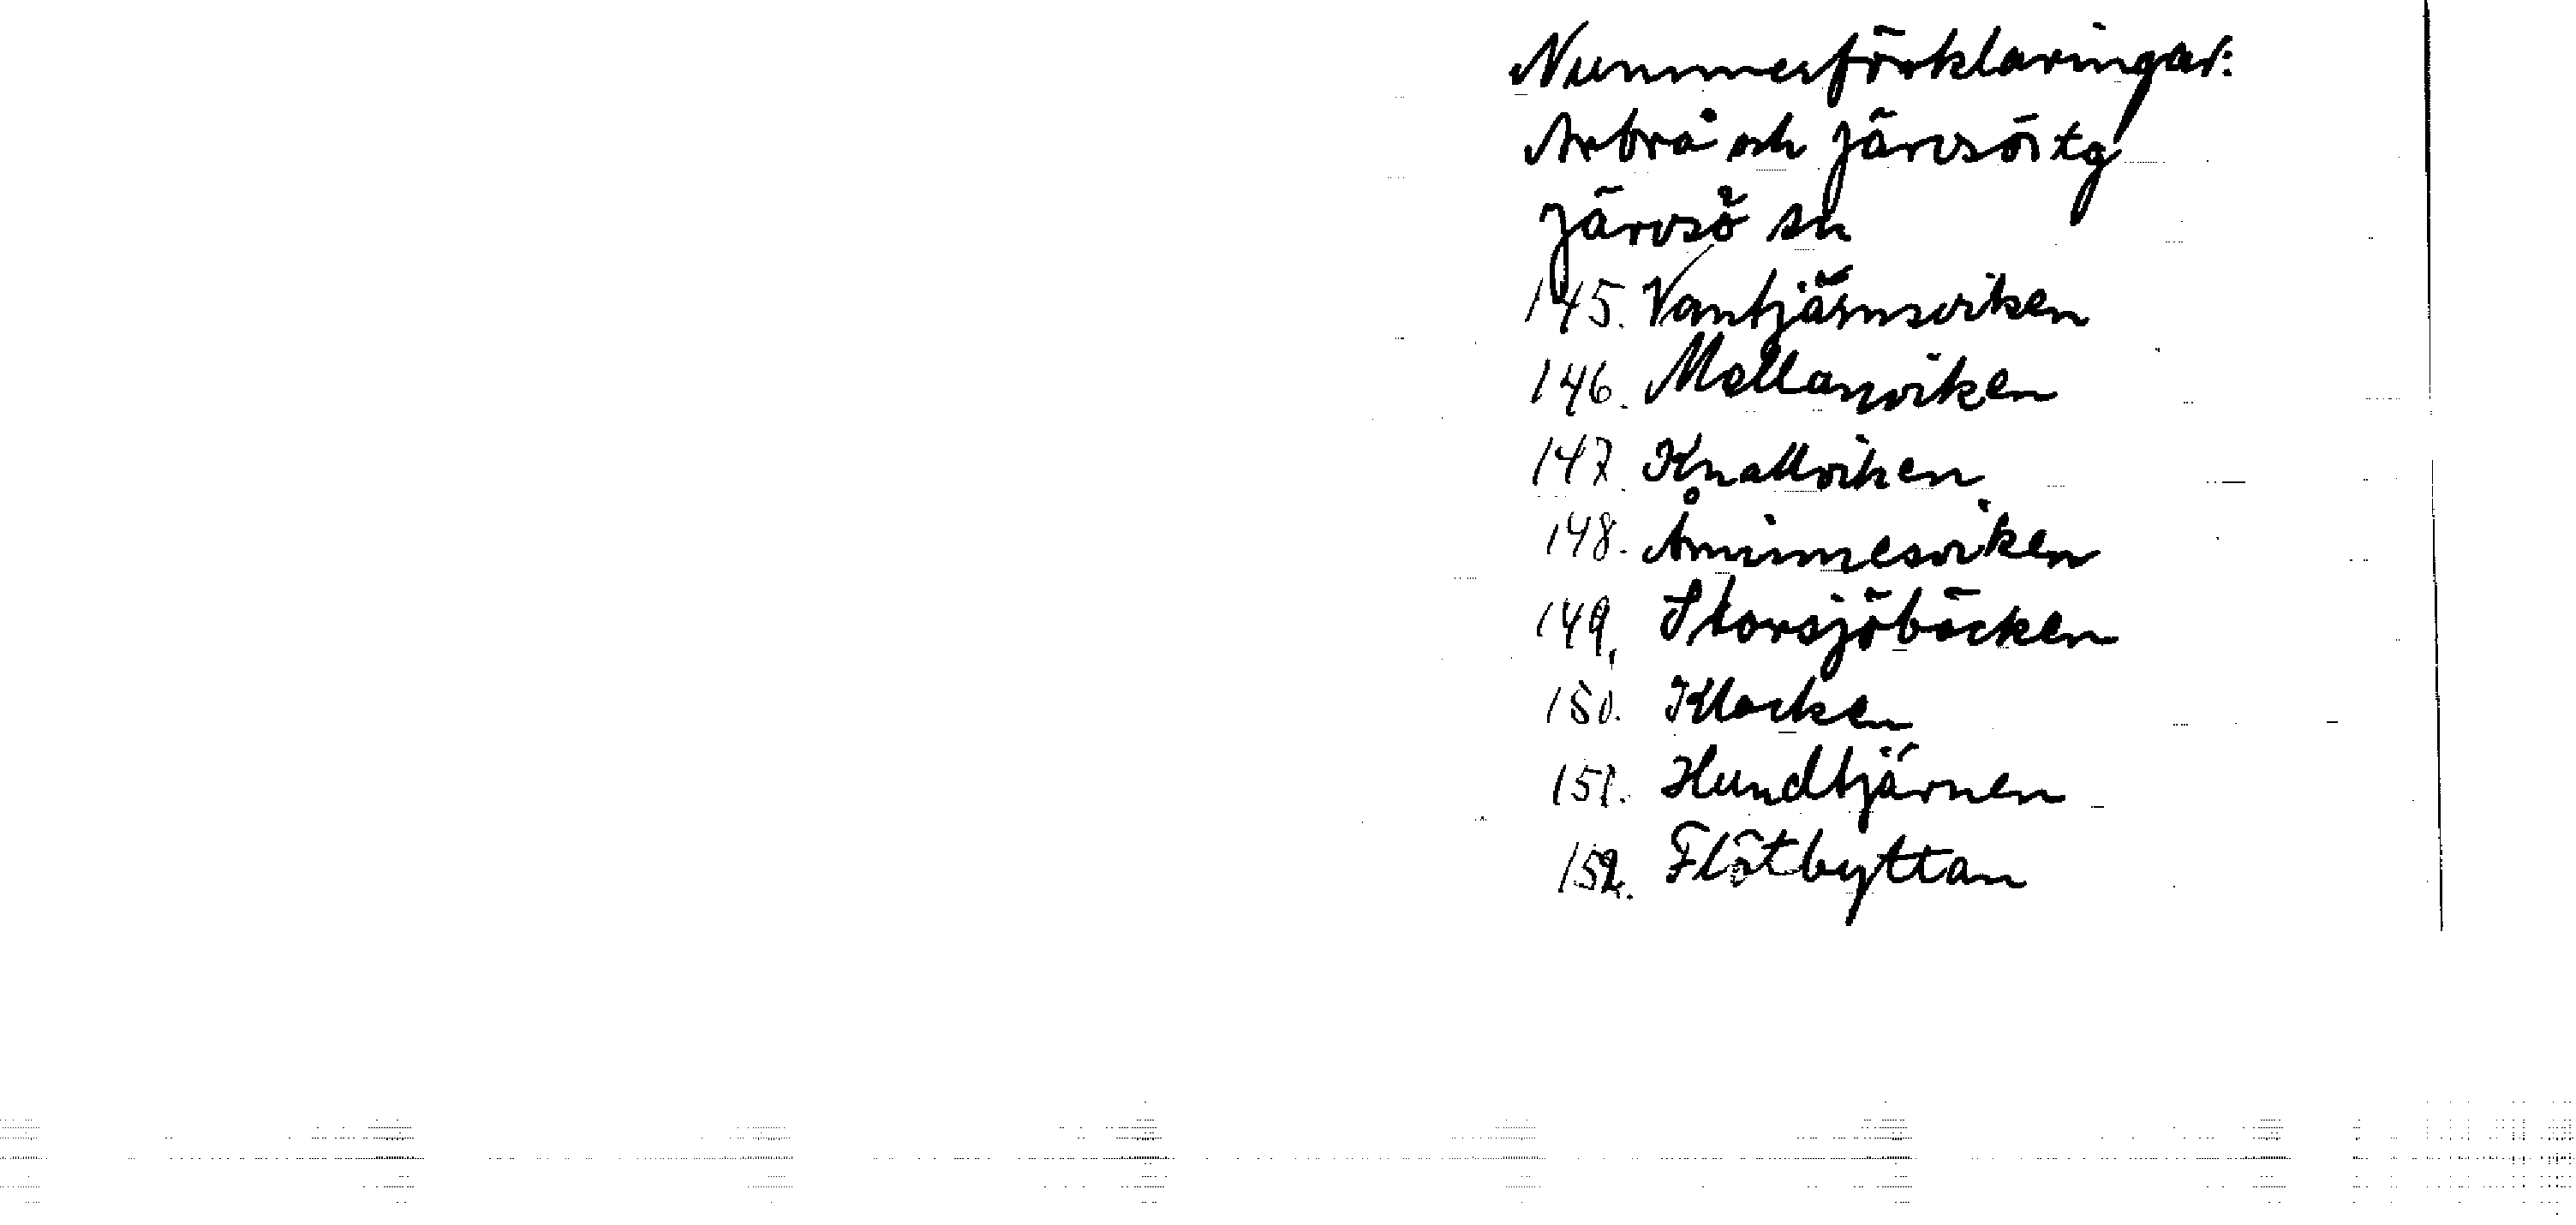 Nummerförklaringar:
Arbrå och Järvsö tg
Järvsö sn
145. Vantjärnsviken
146. Mellanviken
147. Knallviken
148. Åminnesviken
149. Storsjöbäcken
150. Klacken
151. Hundtjärnen
152. Flötbyttan